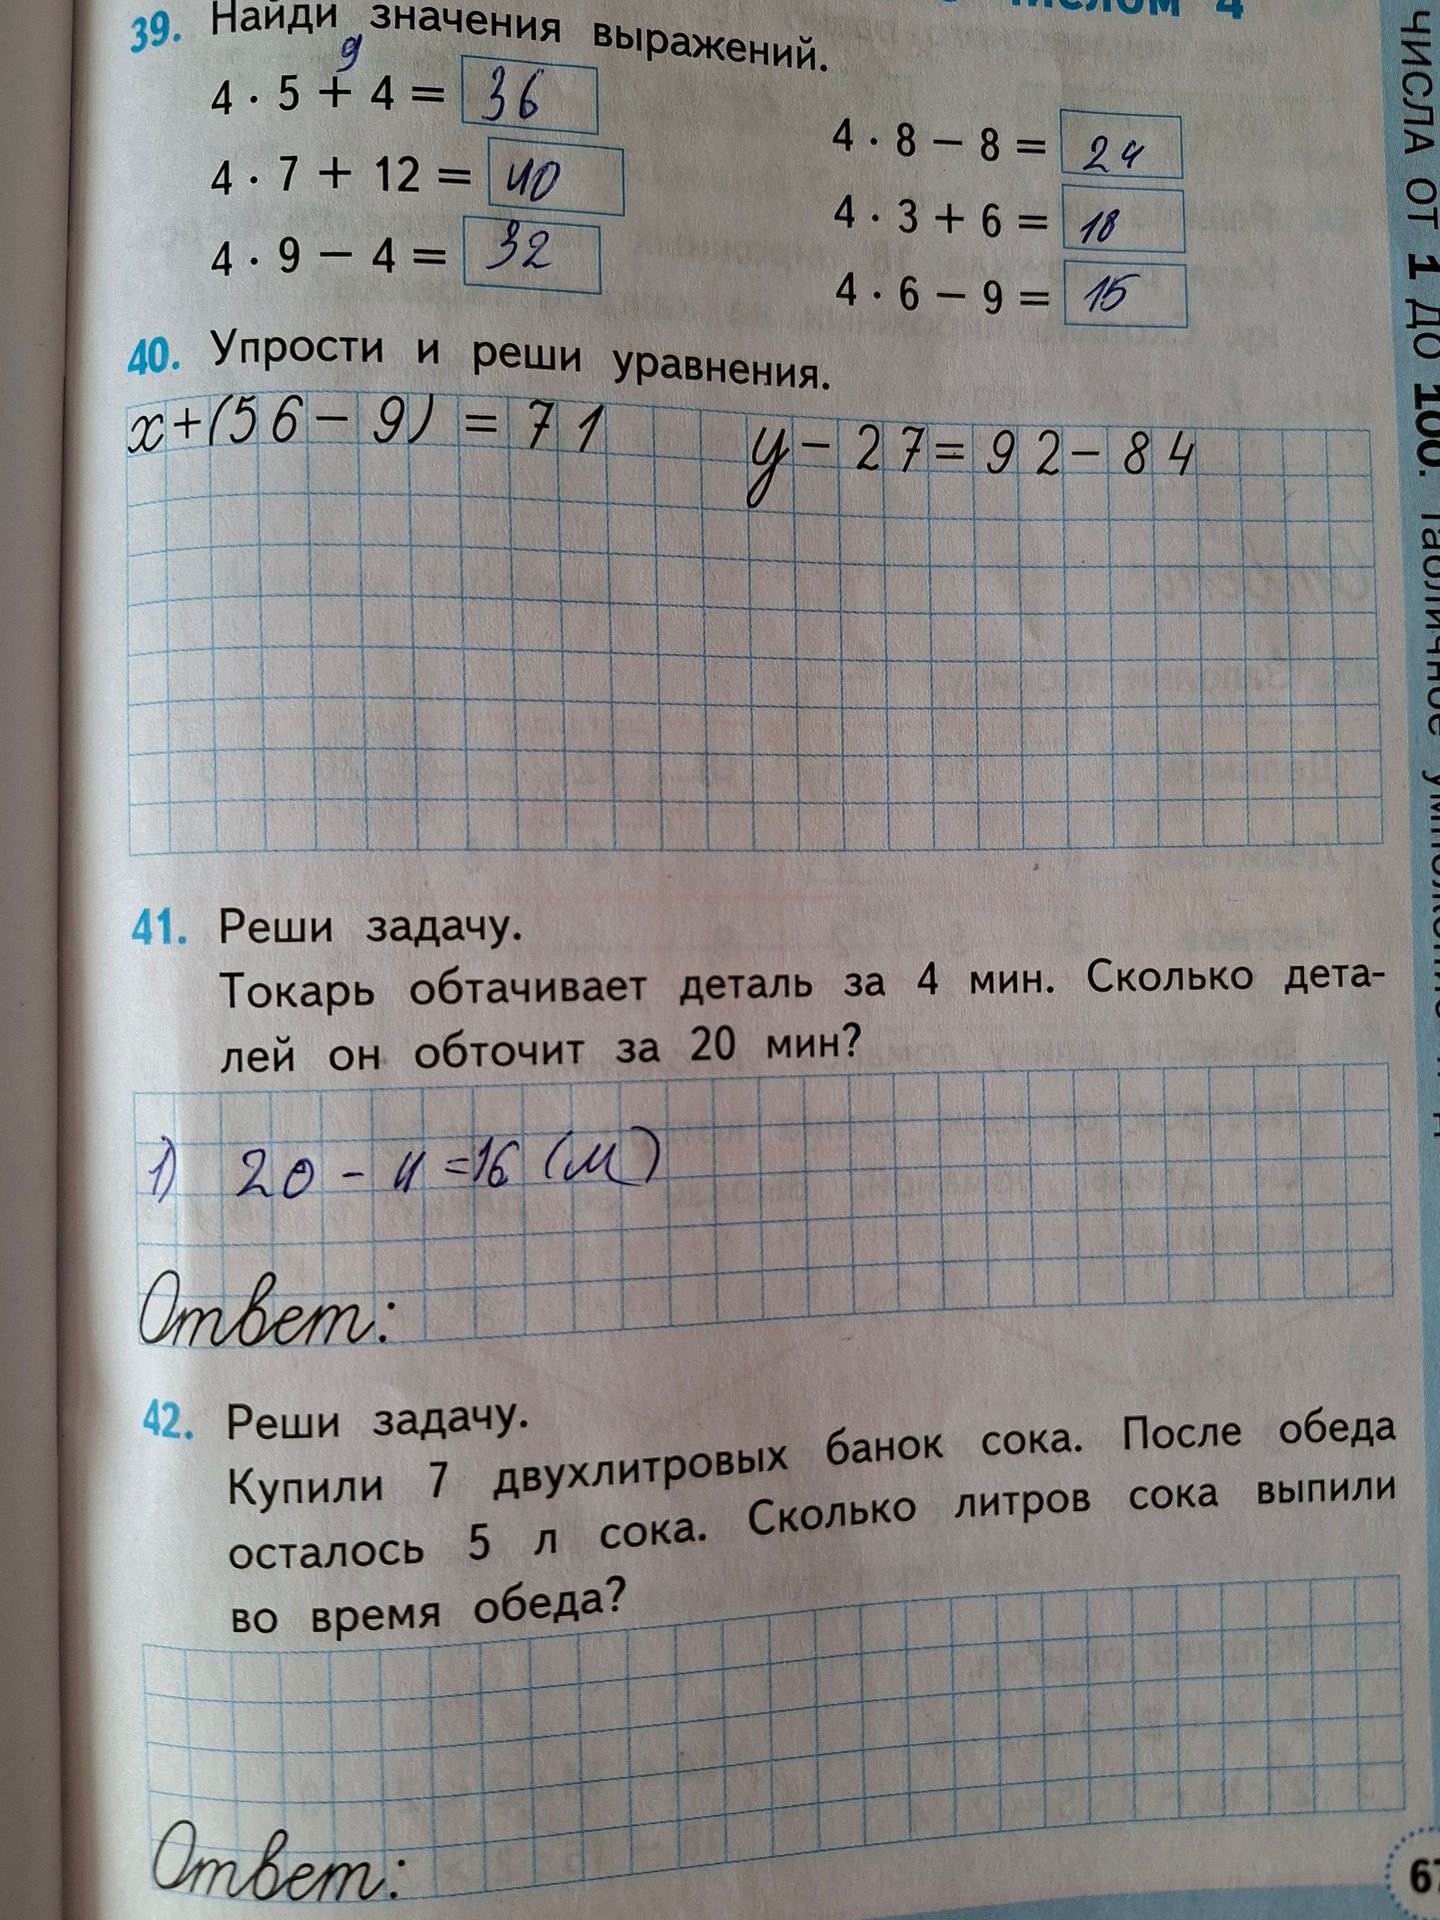 числом 4
39. Найди значения выражений.
9
4 · 5 + 4 = 36
4 · 8 − 8 = 24
4 · 7 + 12 = 40
4 · 3 + 6 = 18
4 · 9 − 4 = 32
4 · 6 − 9 = 15
40. Упрости и реши уравнения.
x+(56−9) = 71
y−27=92−84
41. Реши задачу.
Токарь обтачивает деталь за 4 мин. Сколько дета-
лей он обточит за 20 мин?
1) 20 − 4 =16 (м)
Ответ:
42. Реши задачу.
Купили 7 двухлитровых банок сока. После обеда
осталось 5 л сока. Сколько литров сока выпили
во время обеда?
Ответ:
67
ЧИСЛА ОТ 1 ДО 100. Табличное умножение и д